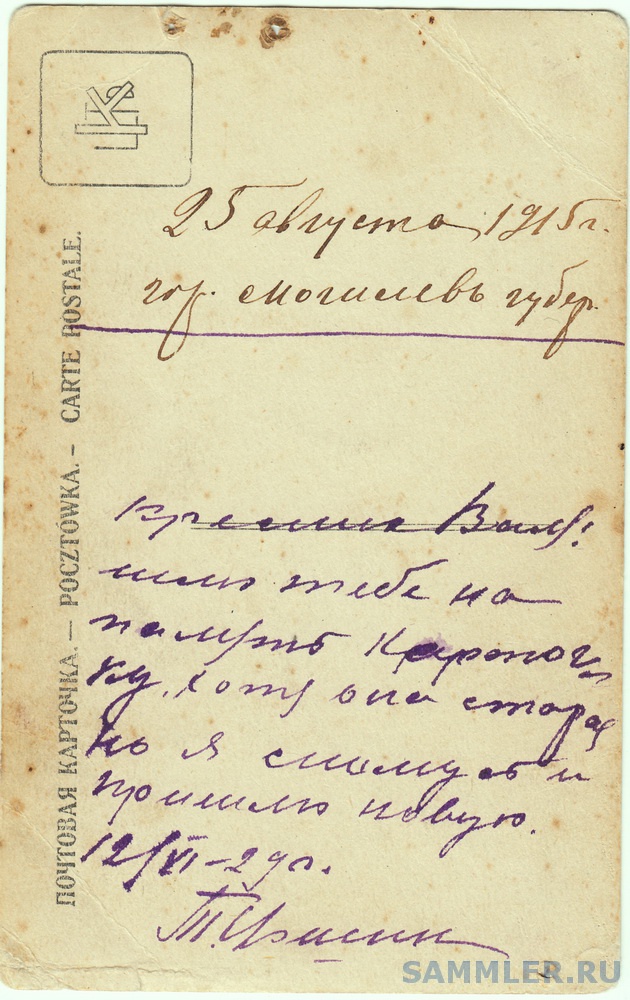 ПОЧТОВАЯ КАРТОЧКА. — POCZTÓWKA. — CARTE POSTALE.
25 августа 1915 г.
гор. Могилевъ губер.
Валя!
шлю тебе на
память карточ-
ку, хотя она старая
но я снимусь и
пришлю новую.
12/VI-29 г.
SAMMLER.RU